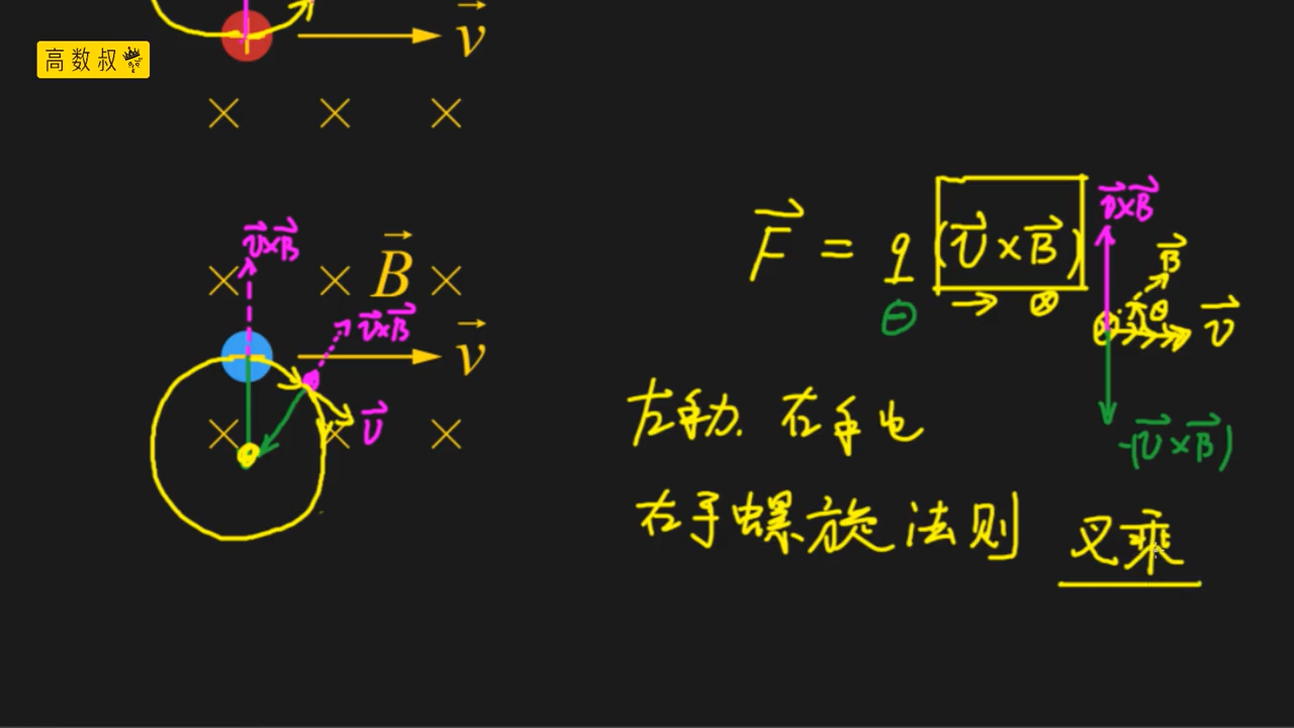 v⃗
高数叔
× × ×
v⃗×B⃗
× × B⃗ ×
v⃗×B⃗
v⃗
× × ×
v⃗
F⃗ = q (v⃗×B⃗)
⊖ → ⊗
v⃗×B⃗
B⃗
θ
v⃗
-(v⃗×B⃗)
左手动. 右手电
右手螺旋法则 叉乘